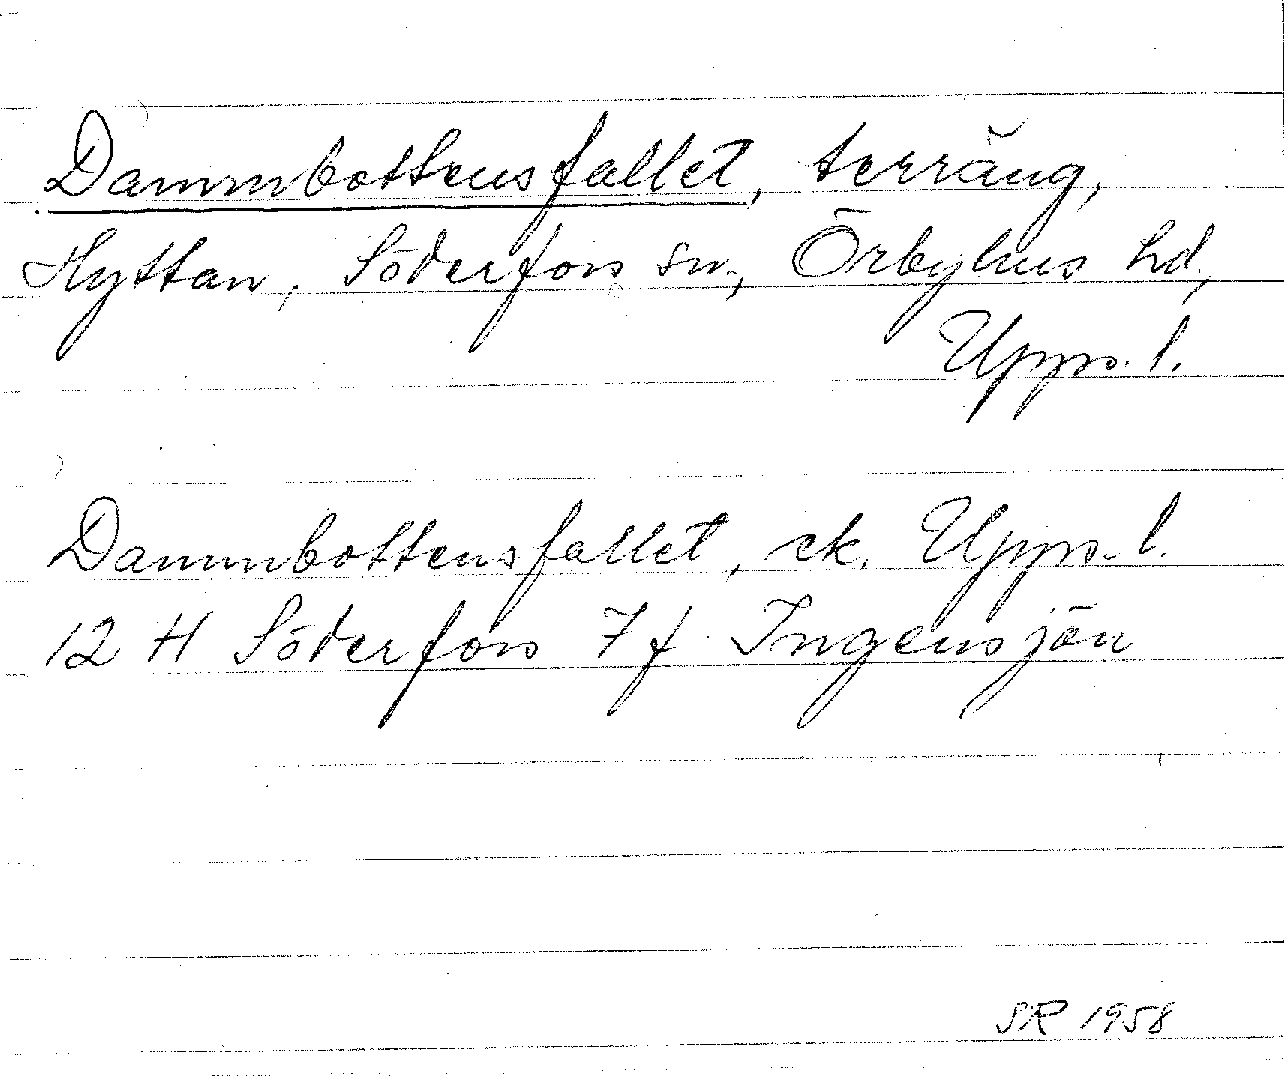 Dammbottensfallet, terräng,
Hyttan, Söderfors sn., Örbyhus hd.,
Upps. l.
Dammbottensfallet, ek. Upps. l.
12 H Söderfors 7 f Ingensjön
SR 1958